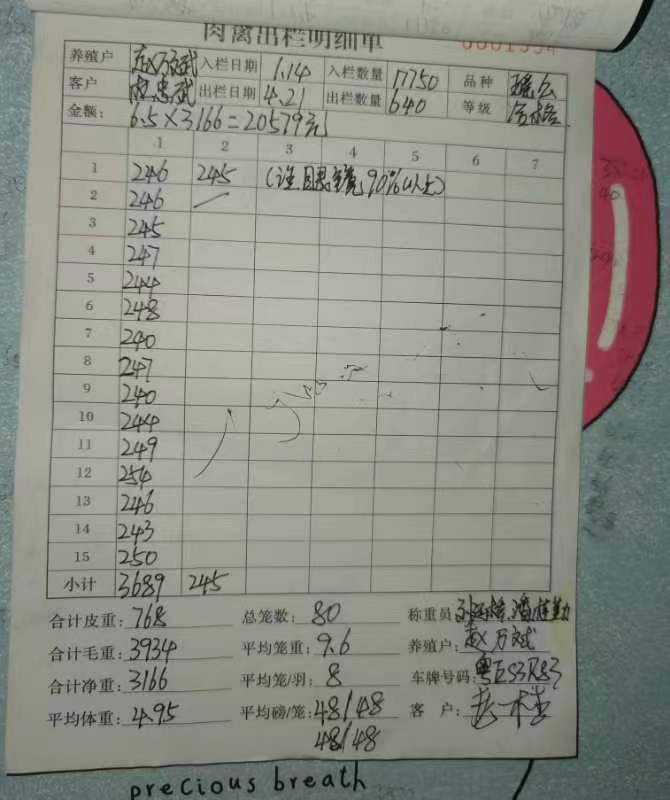 肉禽出栏明细单
养殖户 赵万斌 入栏日期 1.14 入栏数量 17750 品种
客户 出栏日期 4.21 出栏数量 640 等级 合格
金额: 6.5×3166=20579元
1 2 3 4 5 6 7
1 246 245 90%以上)
2 246
3 245
4 247
5 244
6 248
7 240
8 247
9 240
10 244
11 249
12 254
13 246
14 243
15 250
小计 3689 245
合计皮重: 768 总笼数: 80 称重员
合计毛重: 3934 平均笼重: 9.6 养殖户: 赵万斌
合计净重: 3166 平均笼/羽: 8 车牌号码:
平均体重: 4.95 平均磅/笼: 48/48 客 户:
48/48
precious breath